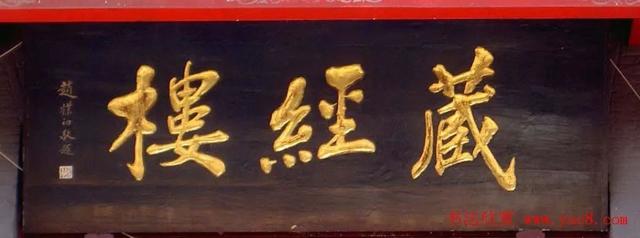 藏經樓
趙樸初敬題
www.yac8.com